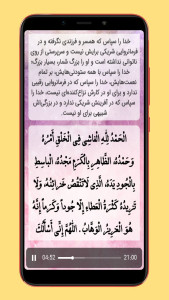 خدا را سپاس که همسر و فرزندی نگرفته و در
فرمانروایی شریکی برایش نیست و سرپرستی از روی
ذلت برای او نیست و او را بزرگ شمار، بسیار بزرگ؛
خدا را سپاس با همه ستودنی‌هایش، بر تمام
نعمت‌هایش، خدا را سپاس که در فرمانروایی مخالفی
ندارد و برای او در کارش نزاع‌کننده‌ای نیست، خدا را
سپاس که در آفرینش شریکی ندارد و در بزرگی‌اش
شبیهی برای او نیست.
الْحَمْدُ لِلّٰهِ الْفَاشِی فِی الْخَلْقِ أَمْرُهُ
وَحَمْدُهُ، الظَّاهِرِ بِالْكَرَمِ مَجْدُهُ، الْباسِطِ
بِالْجُودِ یَدَهُ، الَّذِی لَاتَنْقُصُ خَزائِنُهُ، وَلَا
تَزِیدُهُ كَثْرَةُ الْعَطاءِ إِلّا جُوداً وَكَرَماً إِنَّهُ
هُوَ الْعَزِیزُ الْوَهَّابُ. اللّٰهُمَّ إِنِّی أَسْأَلُكَ
04:52 21:00